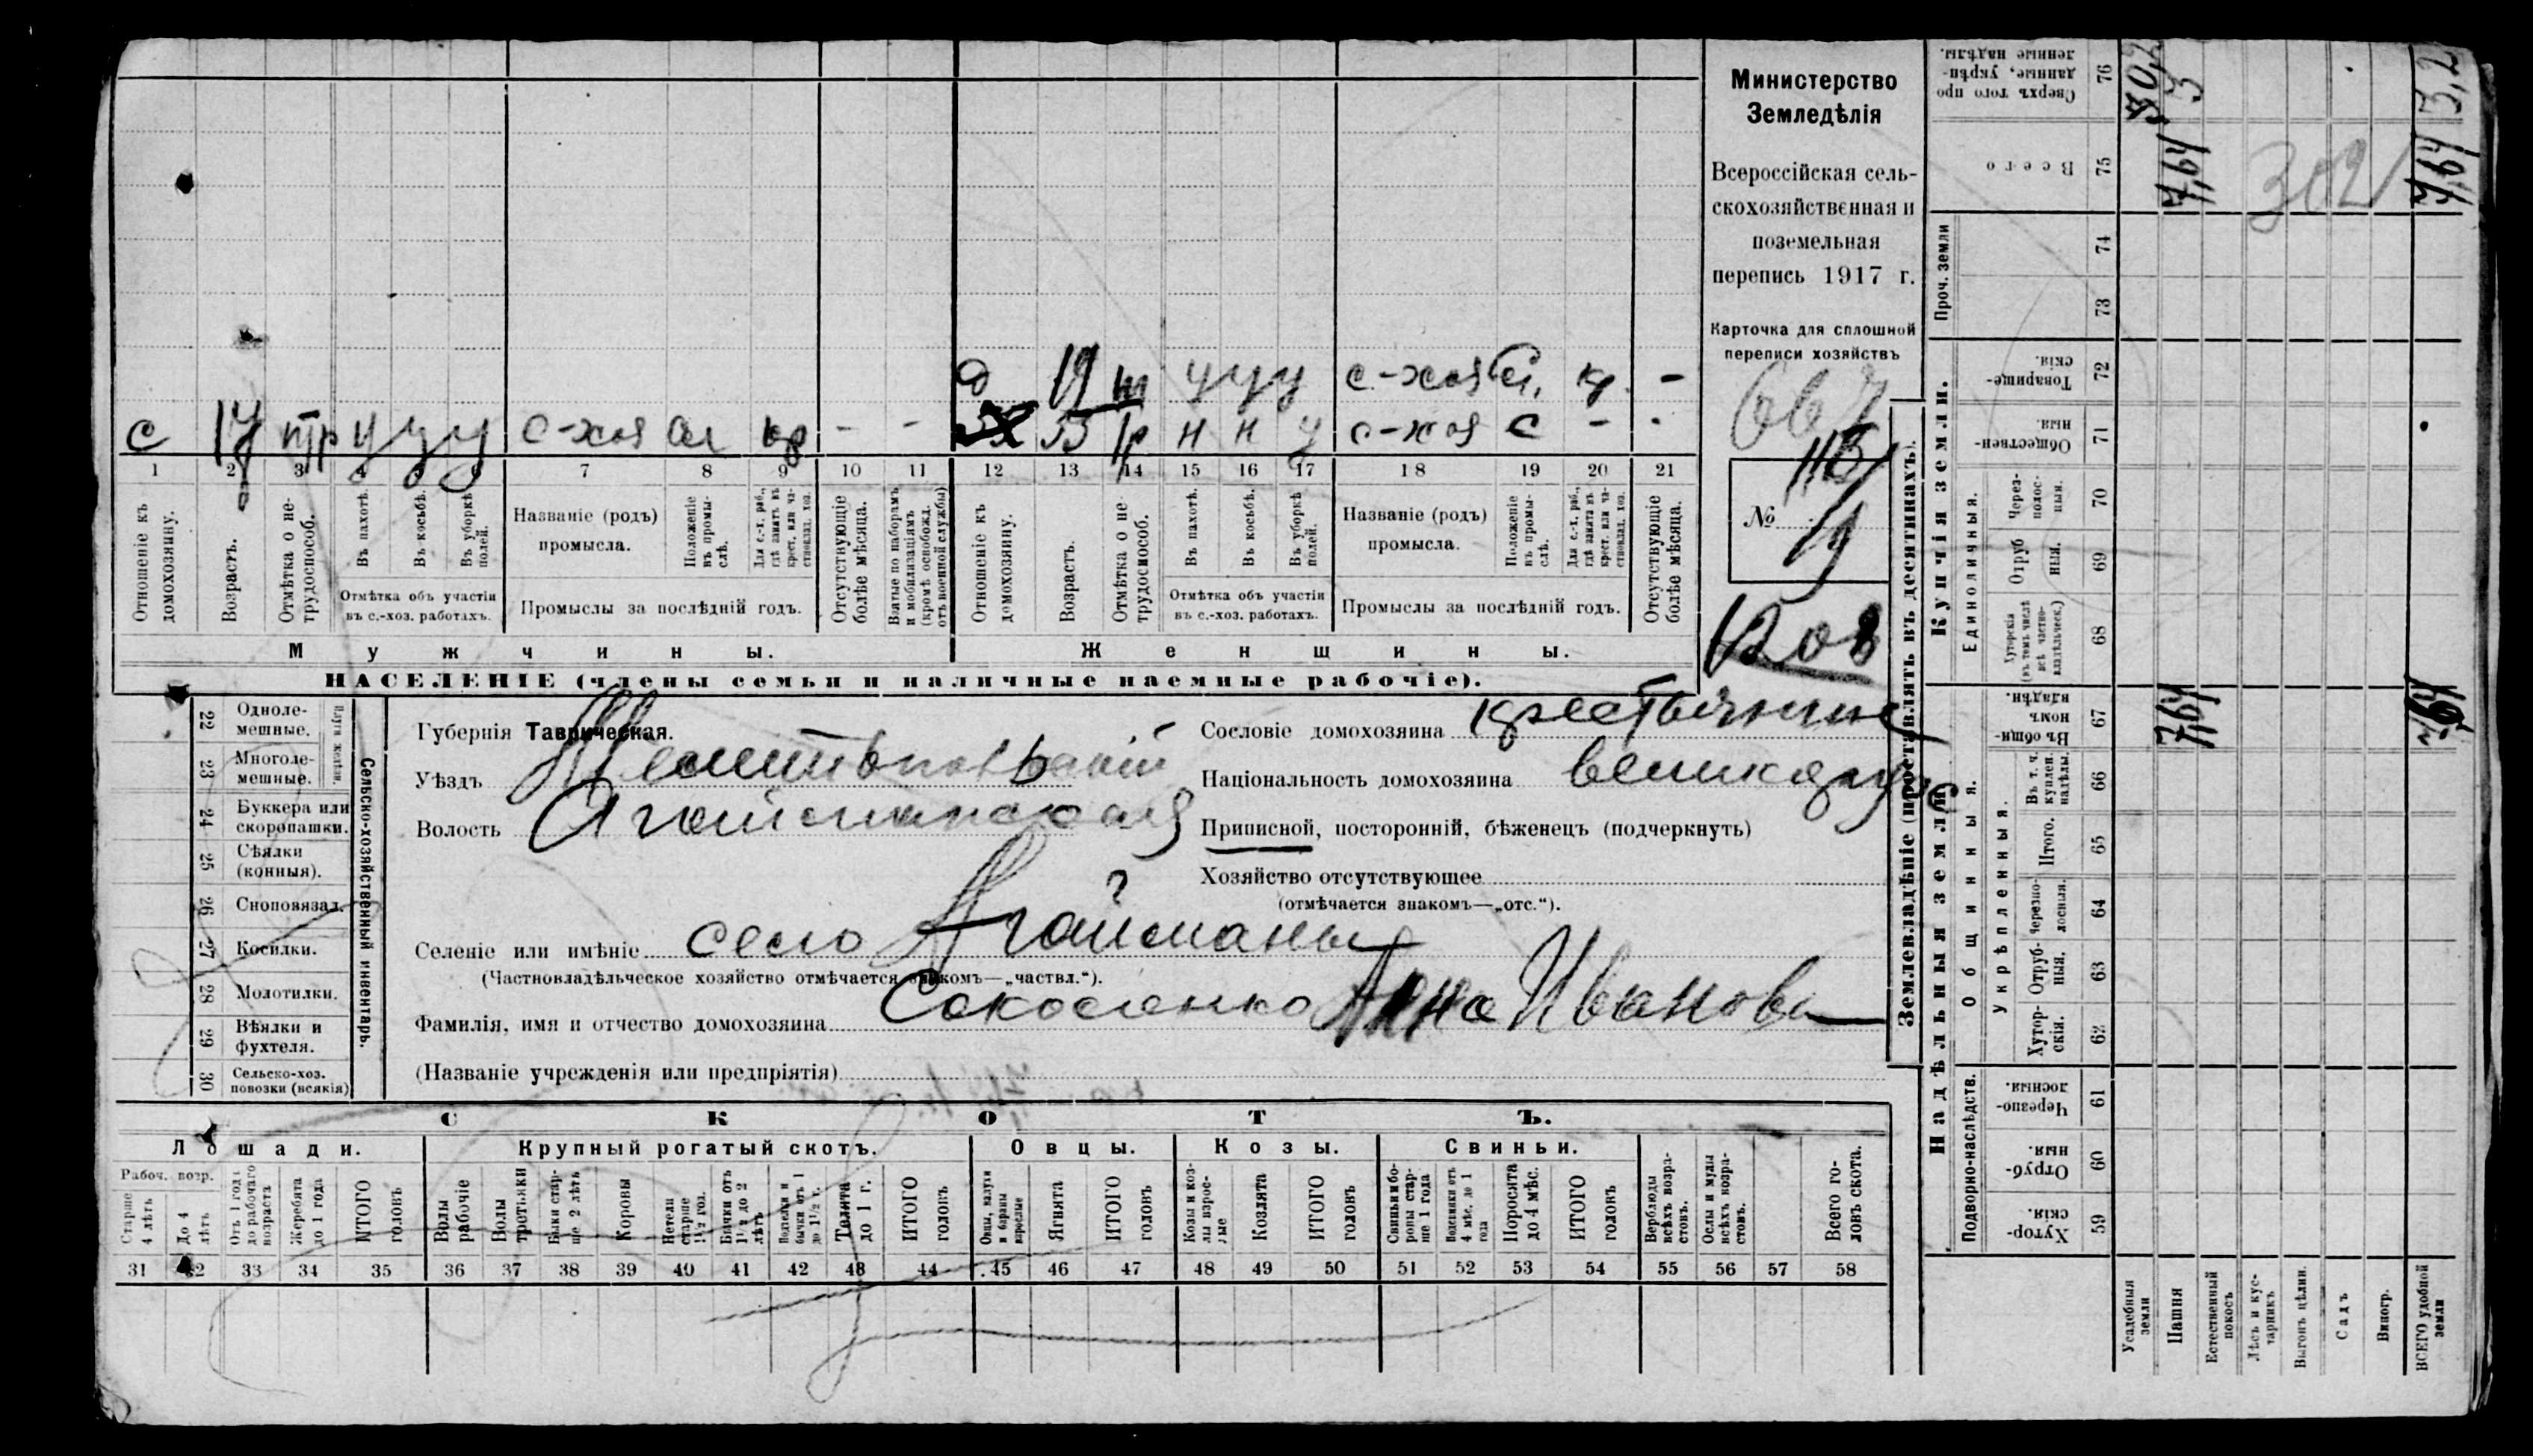 Министерство
Земледѣлія
Всероссійская сель-
скохозяйственная и
поземельная
перепись 1917 г.
Карточка для сплошной
переписи хозяйствъ
667
№
Вдов
д 19 ш у у у с-хоз кр. -
с 17 пр у у у с-хоз кр - - 55 н н у с-хоз с - -
1 2 3 4 5 6 7 8 9 10 11 12 13 14 15 16 17 18 19 20 21
Отношеніе къ домохозяину.
Возрастъ.
Отмѣтка о не-трудоспособ.
Въ пахотѣ.
Въ косьбѣ.
Въ уборкѣ полей.
Отмѣтка объ участіи
въ с.-хоз. работахъ.
Названіе (родъ)
промысла.
Положеніе въ промы-слѣ.
Для с.-х. раб., гдѣ занятъ въ крест. или ча-стновлад. хоз.
Промыслы за послѣдній годъ.
Отсутствующіе болѣе мѣсяца.
Взятые по наборамъ и мобилизаціямъ (кромѣ освобожд. отъ военной службы)
Отношеніе къ домохозяину.
Возрастъ.
Отмѣтка о не-трудоспособ.
Въ пахотѣ.
Въ косьбѣ.
Въ уборкѣ полей.
Отмѣтка объ участіи
въ с.-хоз. работахъ.
Названіе (родъ)
промысла.
Положеніе въ промы-слѣ.
Для с.-х. раб., гдѣ занята въ крест. или ча-стновлад. хоз.
Промыслы за послѣдній годъ.
Отсутствующіе болѣе мѣсяца.
Мужчины.
Женщины.
НАСЕЛЕНІЕ (члены семьи и наличные наемные рабочіе).
Губернія Таврическая.
Уѣздъ Мелитопольскій
Волость Агайманская
Сословіе домохозяина крестьянин
Національность домохозяина великорус
Приписной, посторонній, бѣженецъ (подчеркнуть)
Хозяйство отсутствующее
(отмѣчается знакомъ—„отс.“).
Селеніе или имѣніе село Агайманы
(Частновладѣльческое хозяйство отмѣчается знакомъ—„частвл.“).
Фамилія, имя и отчество домохозяина Соколенко Анна Иванова
(Названіе учрежденія или предпріятія)
Сельско-хозяйственный инвентарь.
22 Одноле-мешные.
23 Многоле-мешные.
24 Буккера или скоропашки.
25 Сѣялки (конныя).
26 Сноповязал.
27 Косилки.
28 Молотилки.
29 Вѣялки и фухтеля.
30 Сельско-хоз. повозки (всякія)
СКОТЪ.
Лошади.
Крупный рогатый скотъ.
Овцы.
Козы.
Свиньи.
Рабоч. возр.
Старше 4 лѣтъ
До 4 лѣтъ
Отъ 1 года до рабочаго возраста
Жеребята до 1 года
ИТОГО головъ
Волы рабочіе
Волы третьяки
Быки стар-ше 2 лѣтъ
Коровы
Нетели старше 1½ год.
Бычки отъ 1½ до 2 лѣтъ
бычки отъ 1 до 1½ г.
Телята до 1 г.
ИТОГО головъ
Овцы, валухи и бараны взрослые
Ягнята
ИТОГО головъ
Козы и коз-лы взрос-лые
Козлята
ИТОГО головъ
Свиньи и бо-ровы стар-ше 1 года
Подсвинки отъ 4 мѣс. до 1 года
Поросята до 4 мѣс.
ИТОГО головъ
Верблюды всѣхъ возра-стовъ.
Ослы и мулы всѣхъ возра-стовъ.
Всего го-ловъ скота.
31 32 33 34 35 36 37 38 39 40 41 42 43 44 45 46 47 48 49 50 51 52 53 54 55 56 57 58
Землевладѣніе (проставлять въ десятинахъ).
Надѣльныя земли.
Купчія земли.
Проч. земли
Подворно-наслѣдств.
Общинныя.
Укрѣпленныя.
Единоличныя.
Сверхъ того про-данные, укрѣп-ленные надѣлы. 76
Всего 75
74
73
Товарище-скія. 72
Обществен-ныя. 71
Через-полос-ныя. 70
Отруб-ныя. 69
Хуторскія (въ томъ числѣ всѣ частно-владѣльческ.) 68
Въ общин-номъ владѣн. 67
Въ т. ч. куплен. надѣлы. 66
Итого. 65
Черезпо-лосныя. 64
Отруб-ныя. 63
Хутор-скія. 62
Черезпо-лосныя. 61
Отруб-ныя. 60
Хутор-скія. 59
Усадебныя земли
Пашня
Естественный покосъ
Лѣсъ и кус-тарникъ
Выгонъ цѣлин.
Садъ
Виногр.
ВСЕГО удобной земли
7,64 3
7,64
302
7,64 3,2